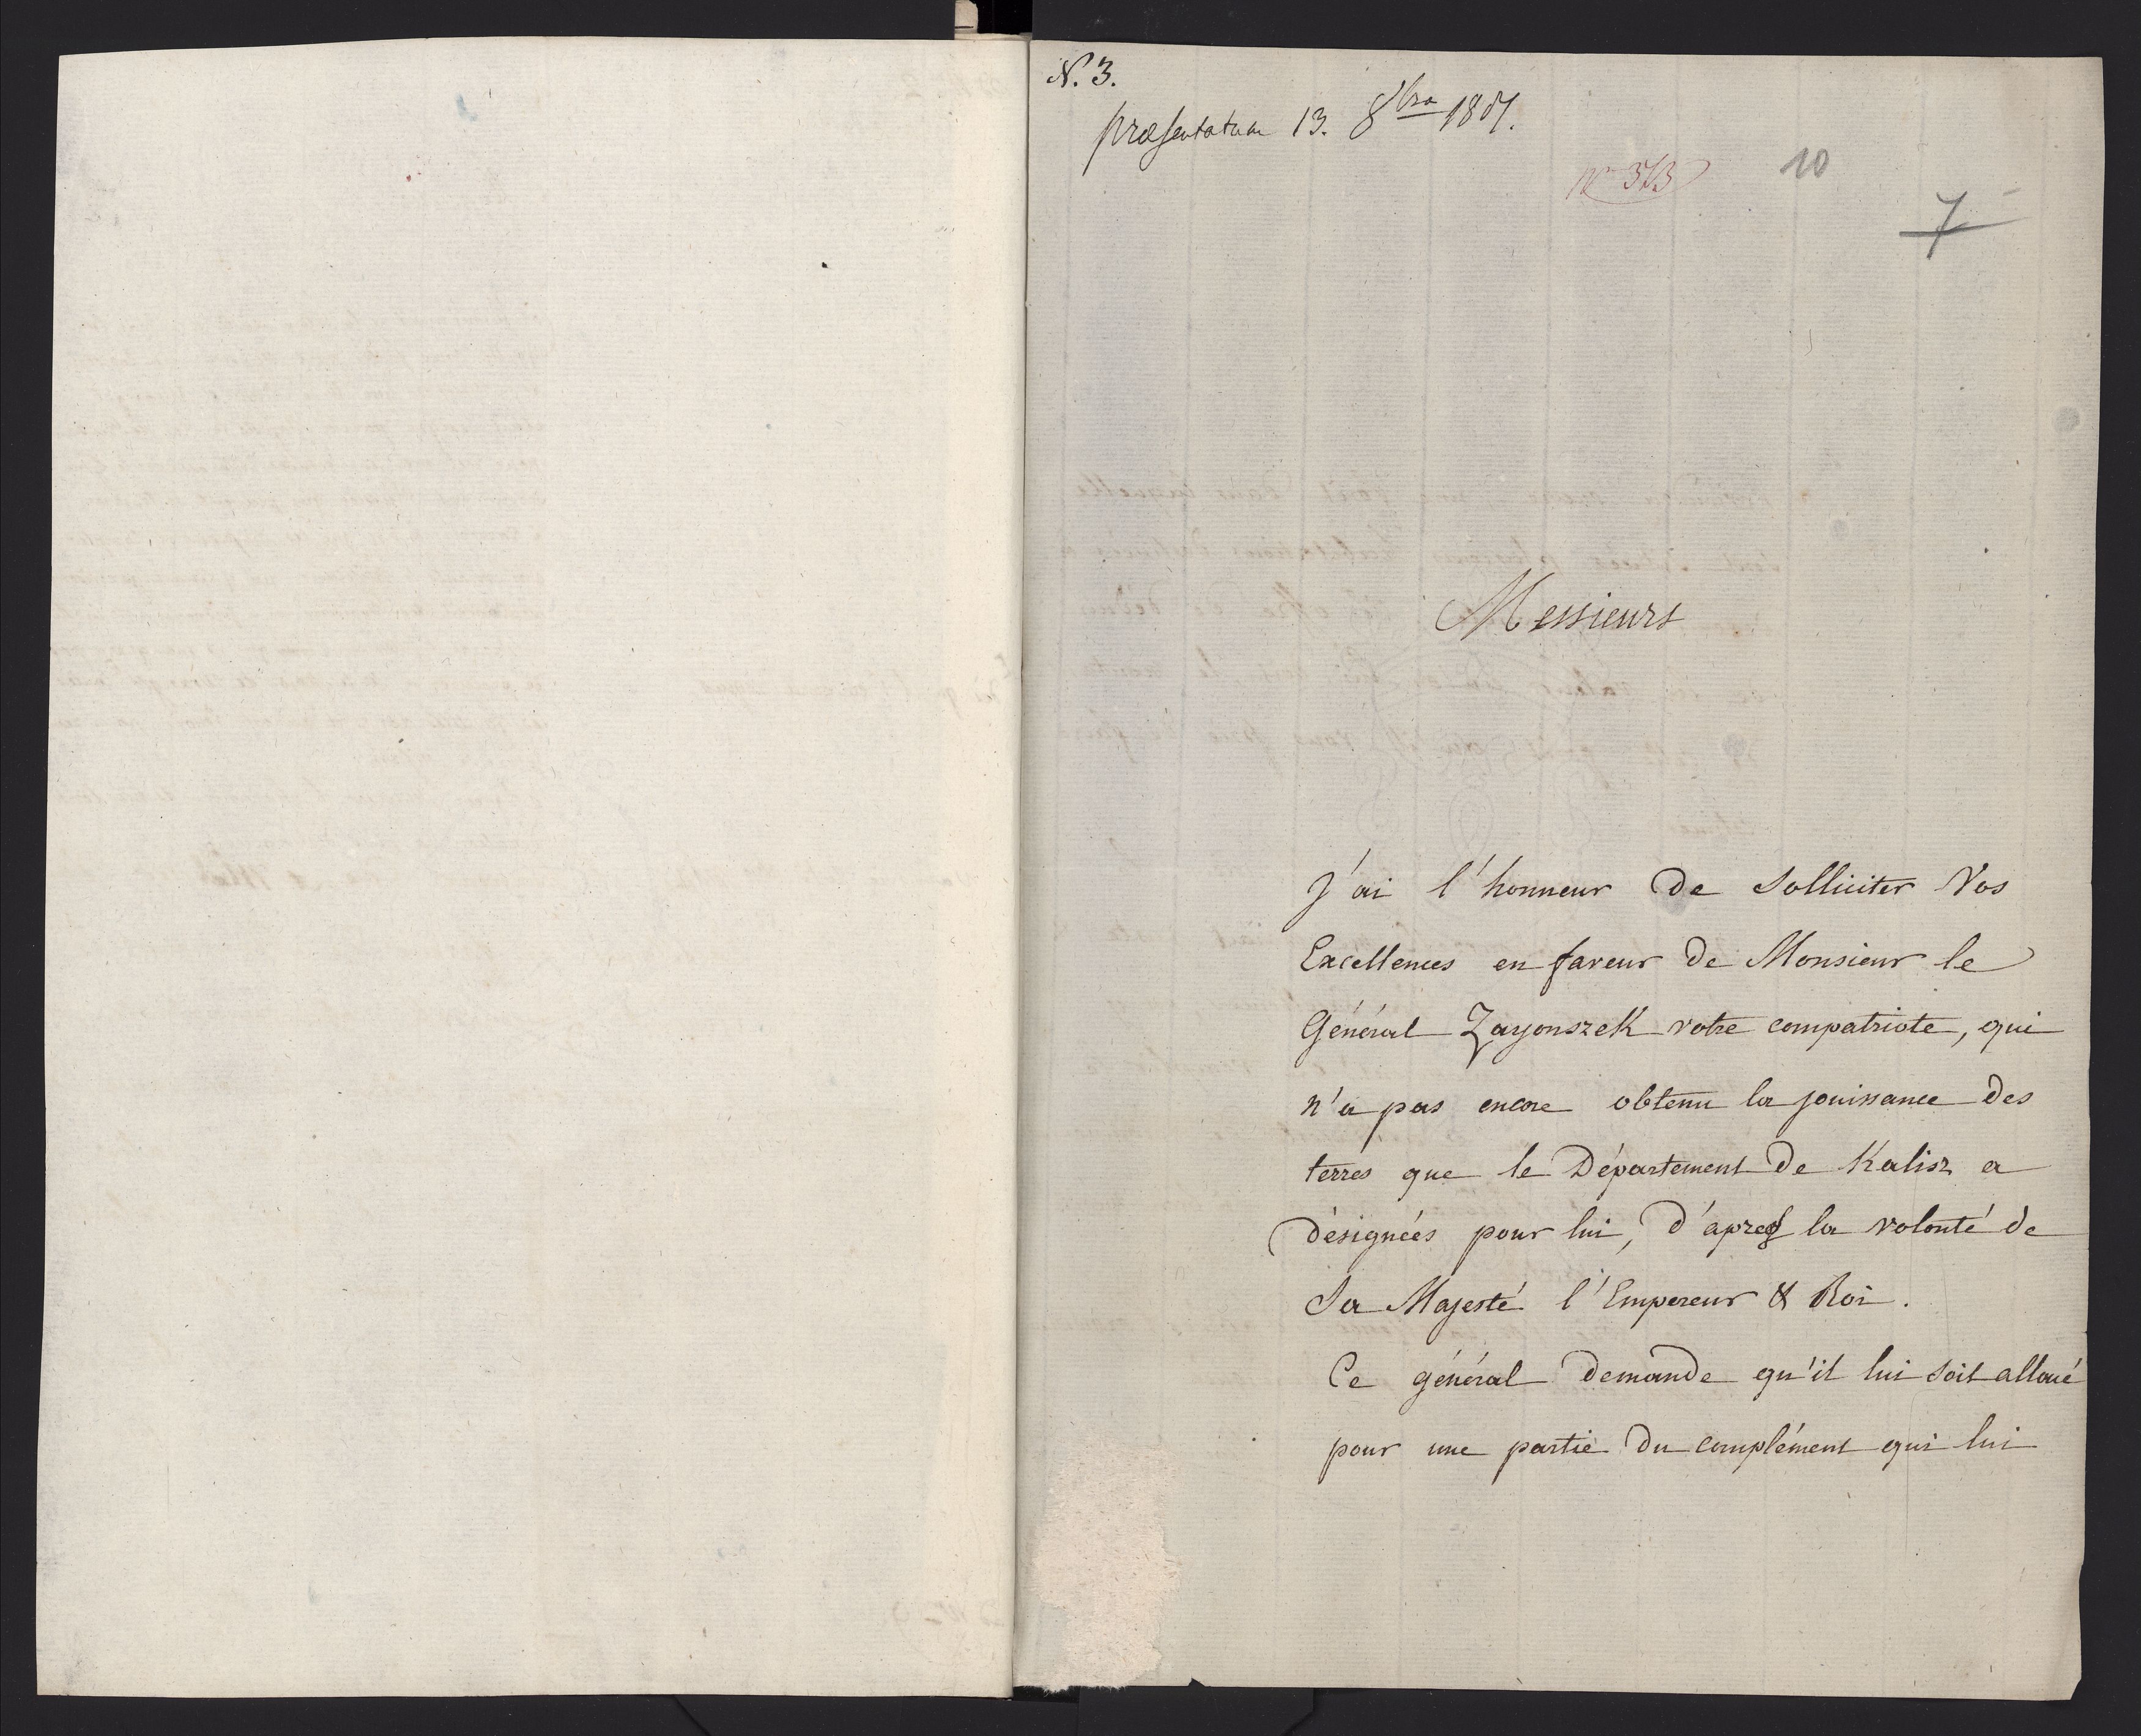 N. 3.
præsentatum 13. 8bra 1807.
No 373
10
7
Messieurs
J'ai l'honneur de solliciter Vos
Excellences en faveur de Monsieur le
Général Zayonszek votre compatriote, qui
n'a pas encore obtenu la jouissance des
terres que le Département de Kalisz a
désignées pour lui, d'apres la volonté de
Sa Majesté l'Empereur & Roi.
Ce général demande qu'il lui soit alloué
pour une partie du complément qui lui